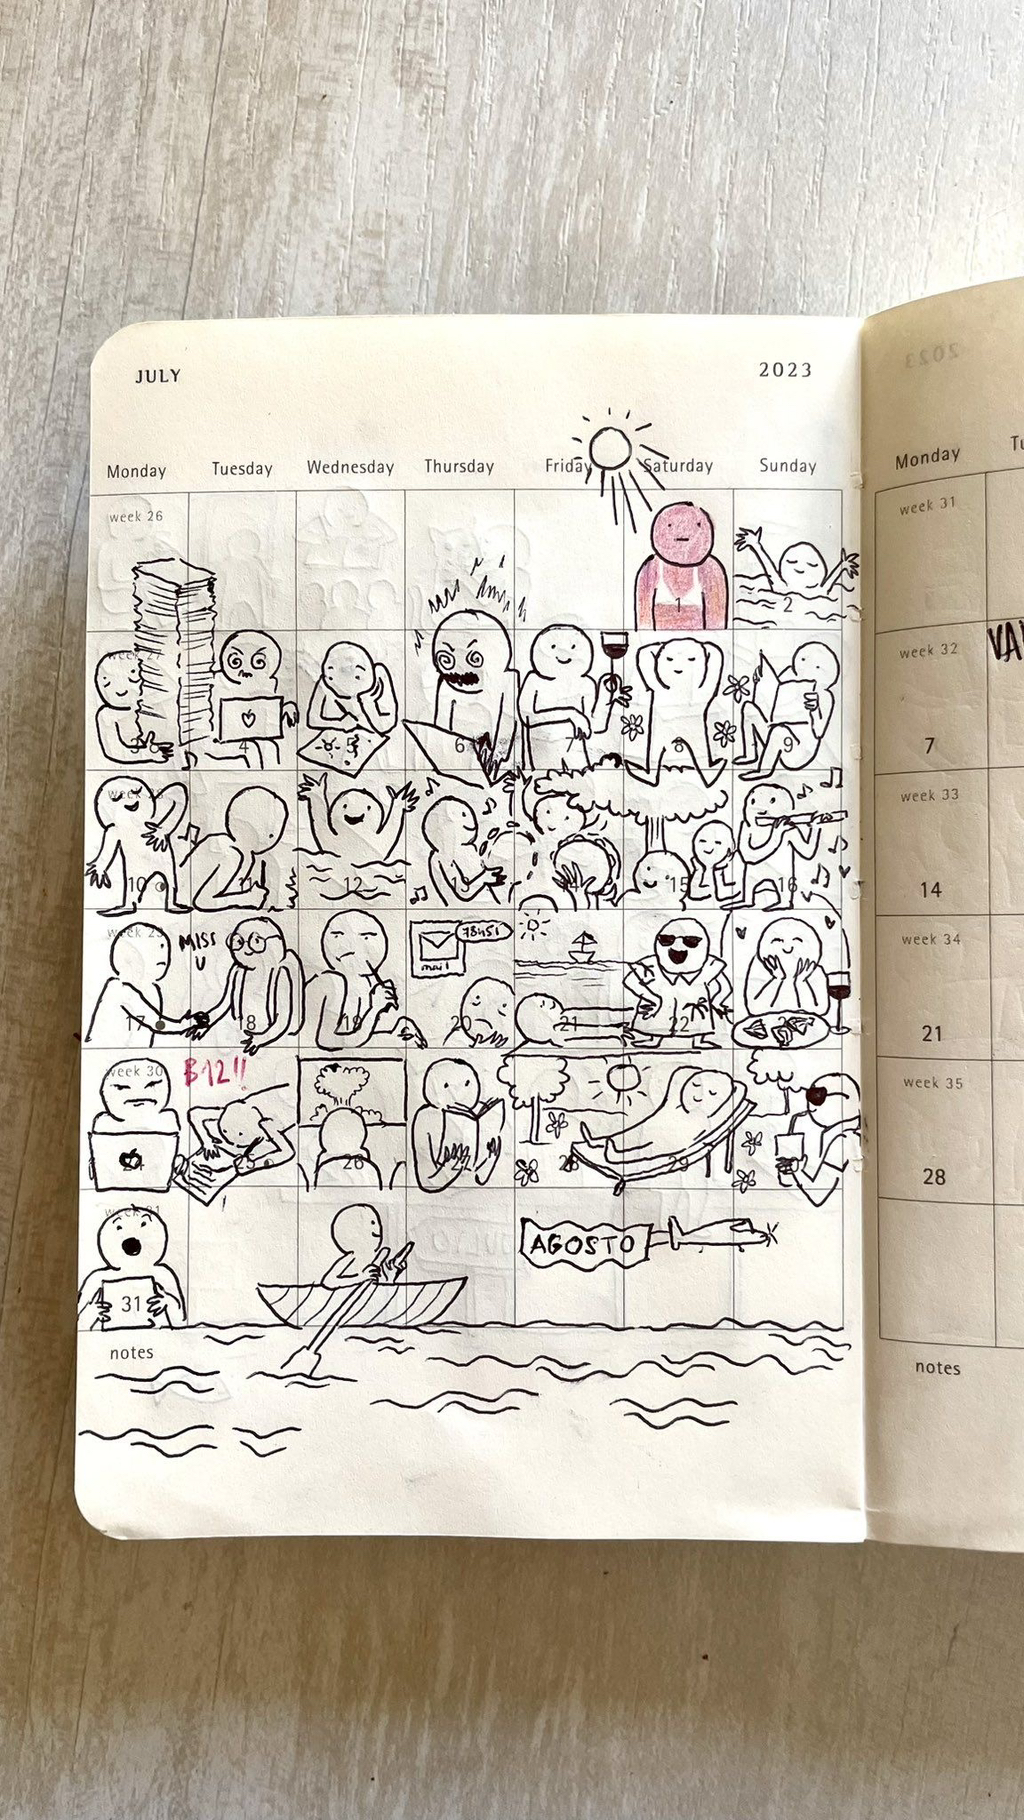 JULY 2023
Monday Tuesday Wednesday Thursday Friday Saturday Sunday
week 26
1 2
3 4 5 6 7 8 9
10 11 12 14 15 16
MISS
U
78451
mail
17 18 19 20 21 22
week 30 B12!!
24 25 26 28 29
31
AGOSTO
notes
2023
Monday Tu
week 31
week 32 VA
7
week 33
14
week 34
21
week 35
28
notes